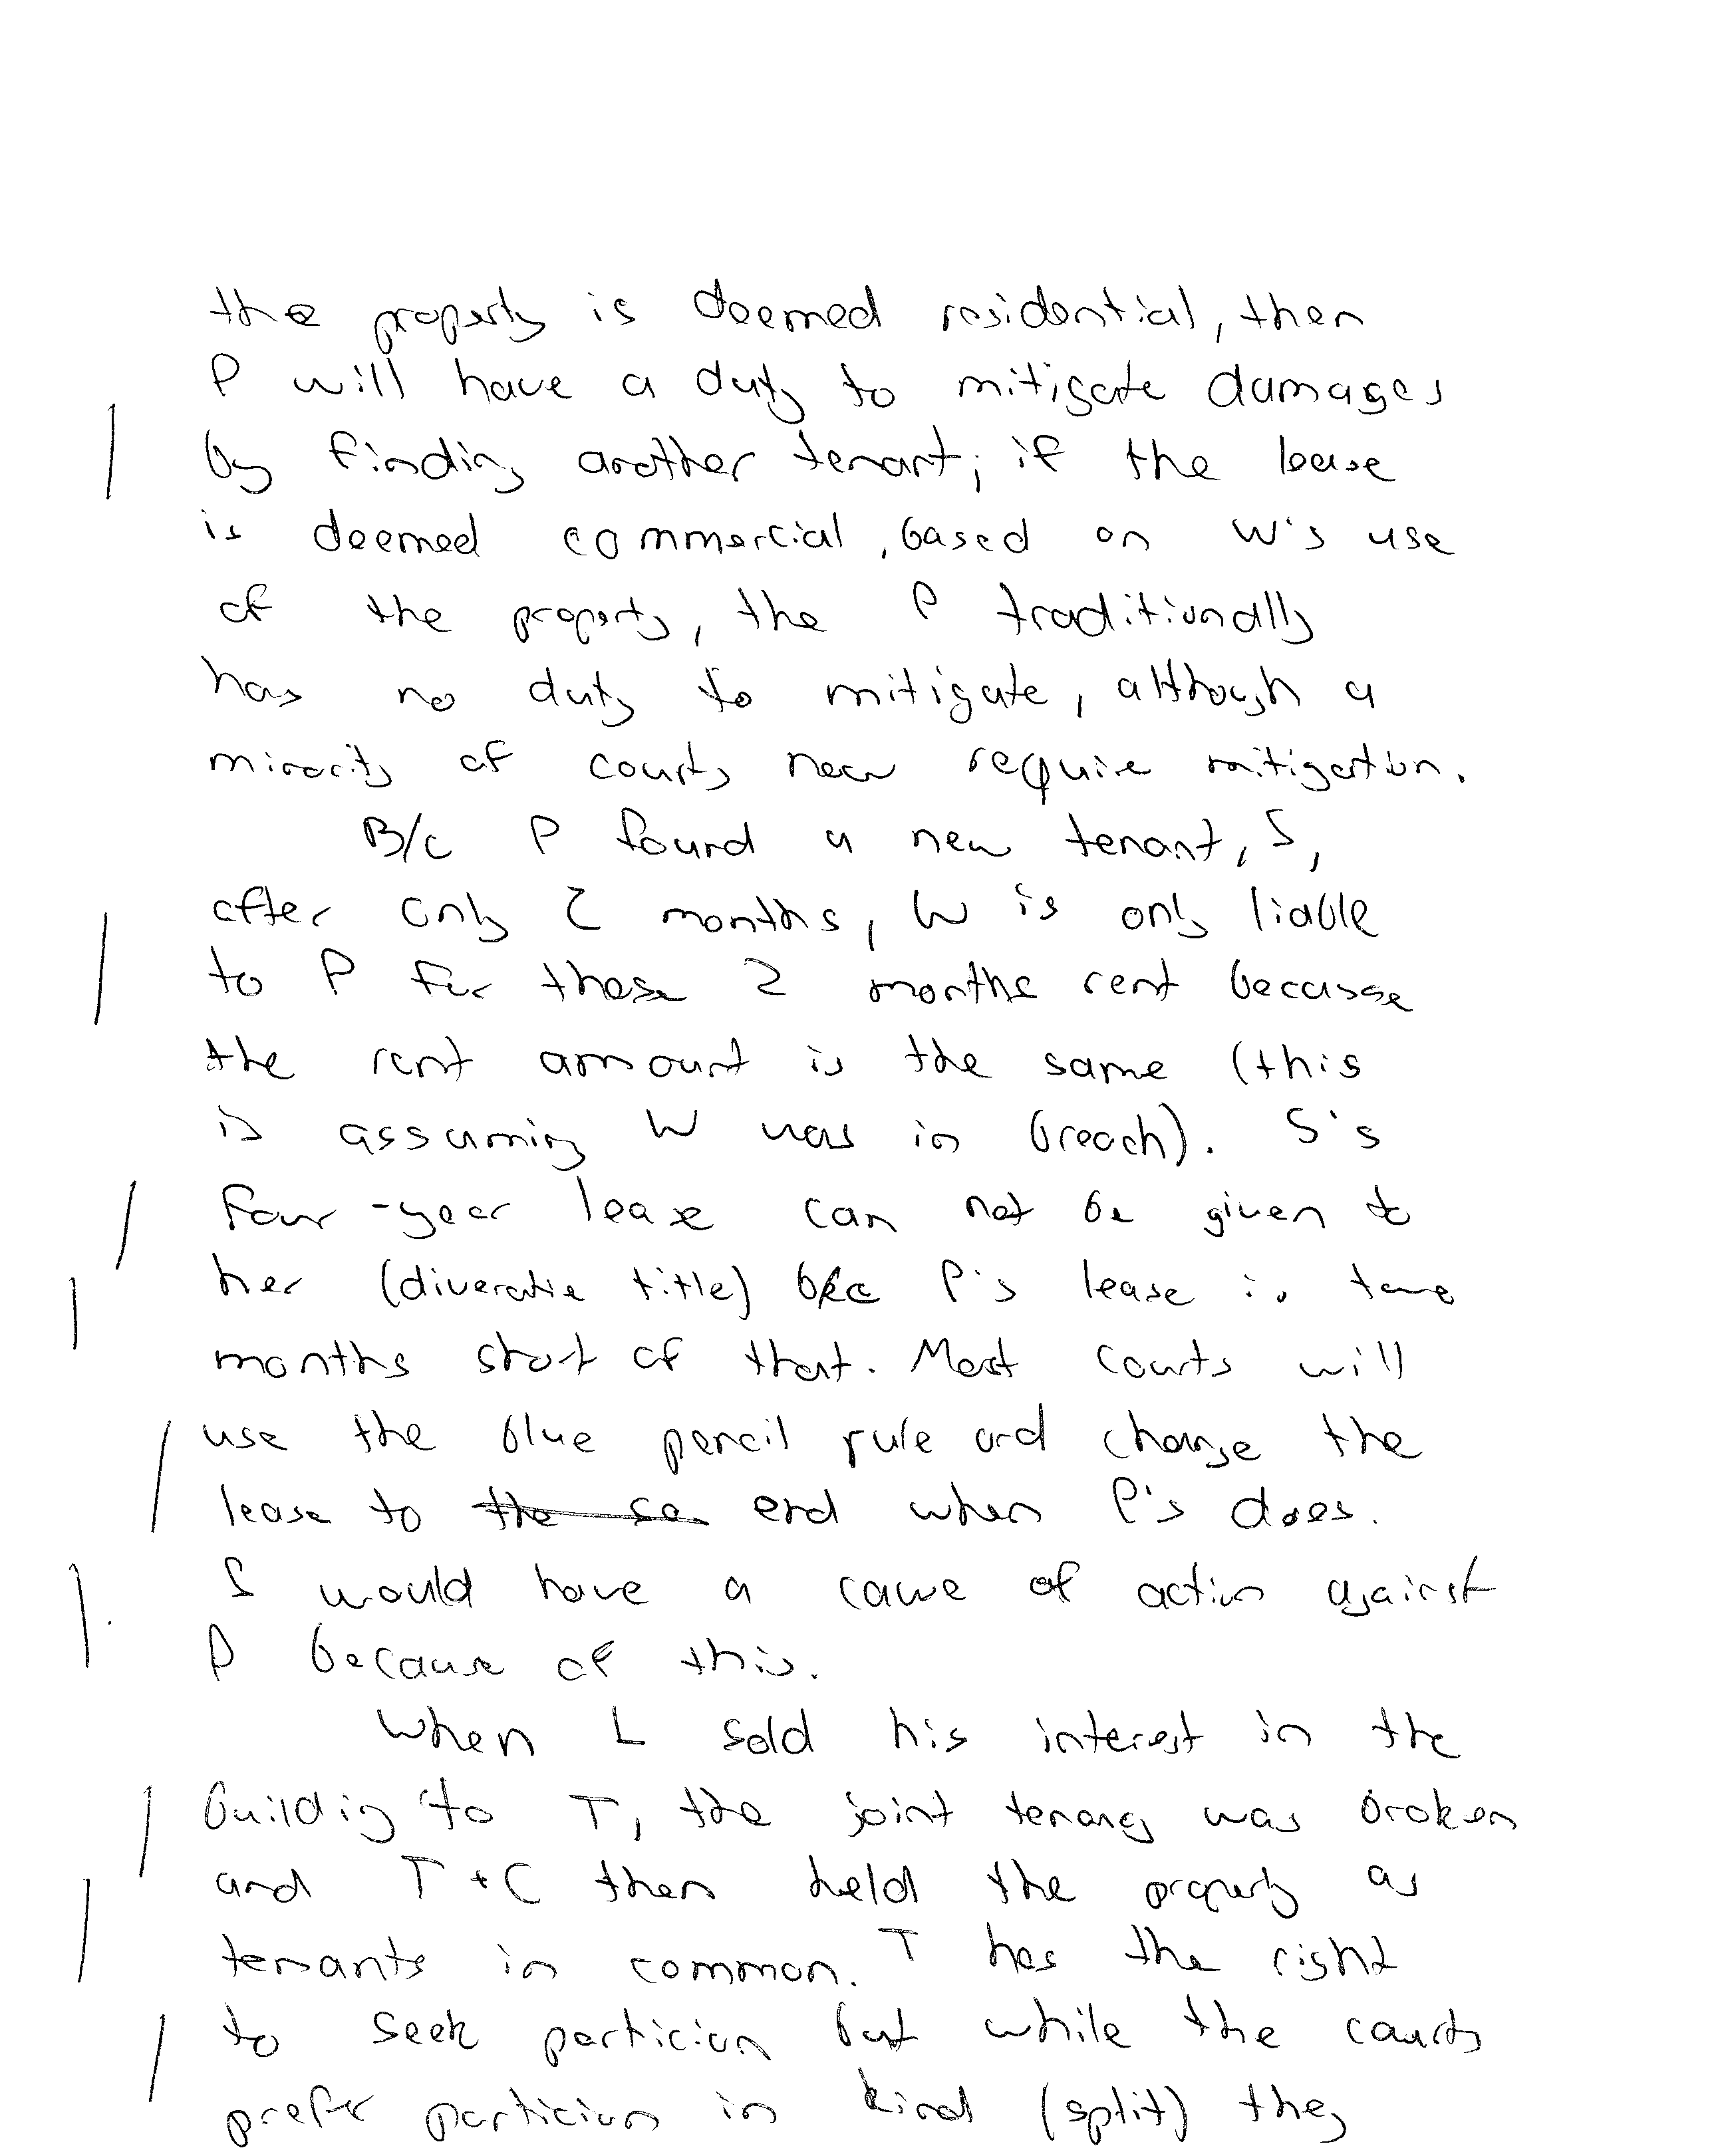 the property is deemed residential, then
P will have a duty to mitigate damages
by finding another tenant; if the lease
is deemed commercial, based on W's use
of the property, the P traditionally
has no duty to mitigate, although a
minority of courts now require mitigation.
B/c P found a new tenant, S,
after only 2 months, W is only liable
to P for these 2 months rent because
the rent amount is the same (this
is assuming W was in breach). S's
four-year lease can not be given to
her (title) b/c P's lease is
months short of that. Most courts will
use the blue pencil rule and change the
lease to the se end when P's does.
S would have a cause of action against
P because of this.
When L sold his interest in the
building to T, the joint tenancy was broken
and T + C then held the property as
tenants in common. T has the right
to seek particion but while the courts
prefer particion in kind (split) they